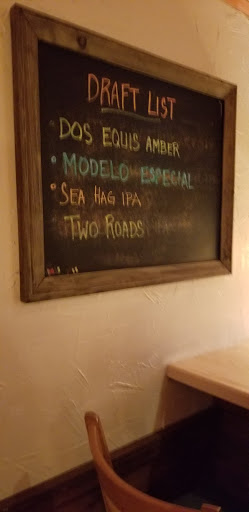 DRAFT LIST
• DOS EQUIS AMBER
• MODELO ESPECIAL
• SEA HAG IPA
TWO ROADS